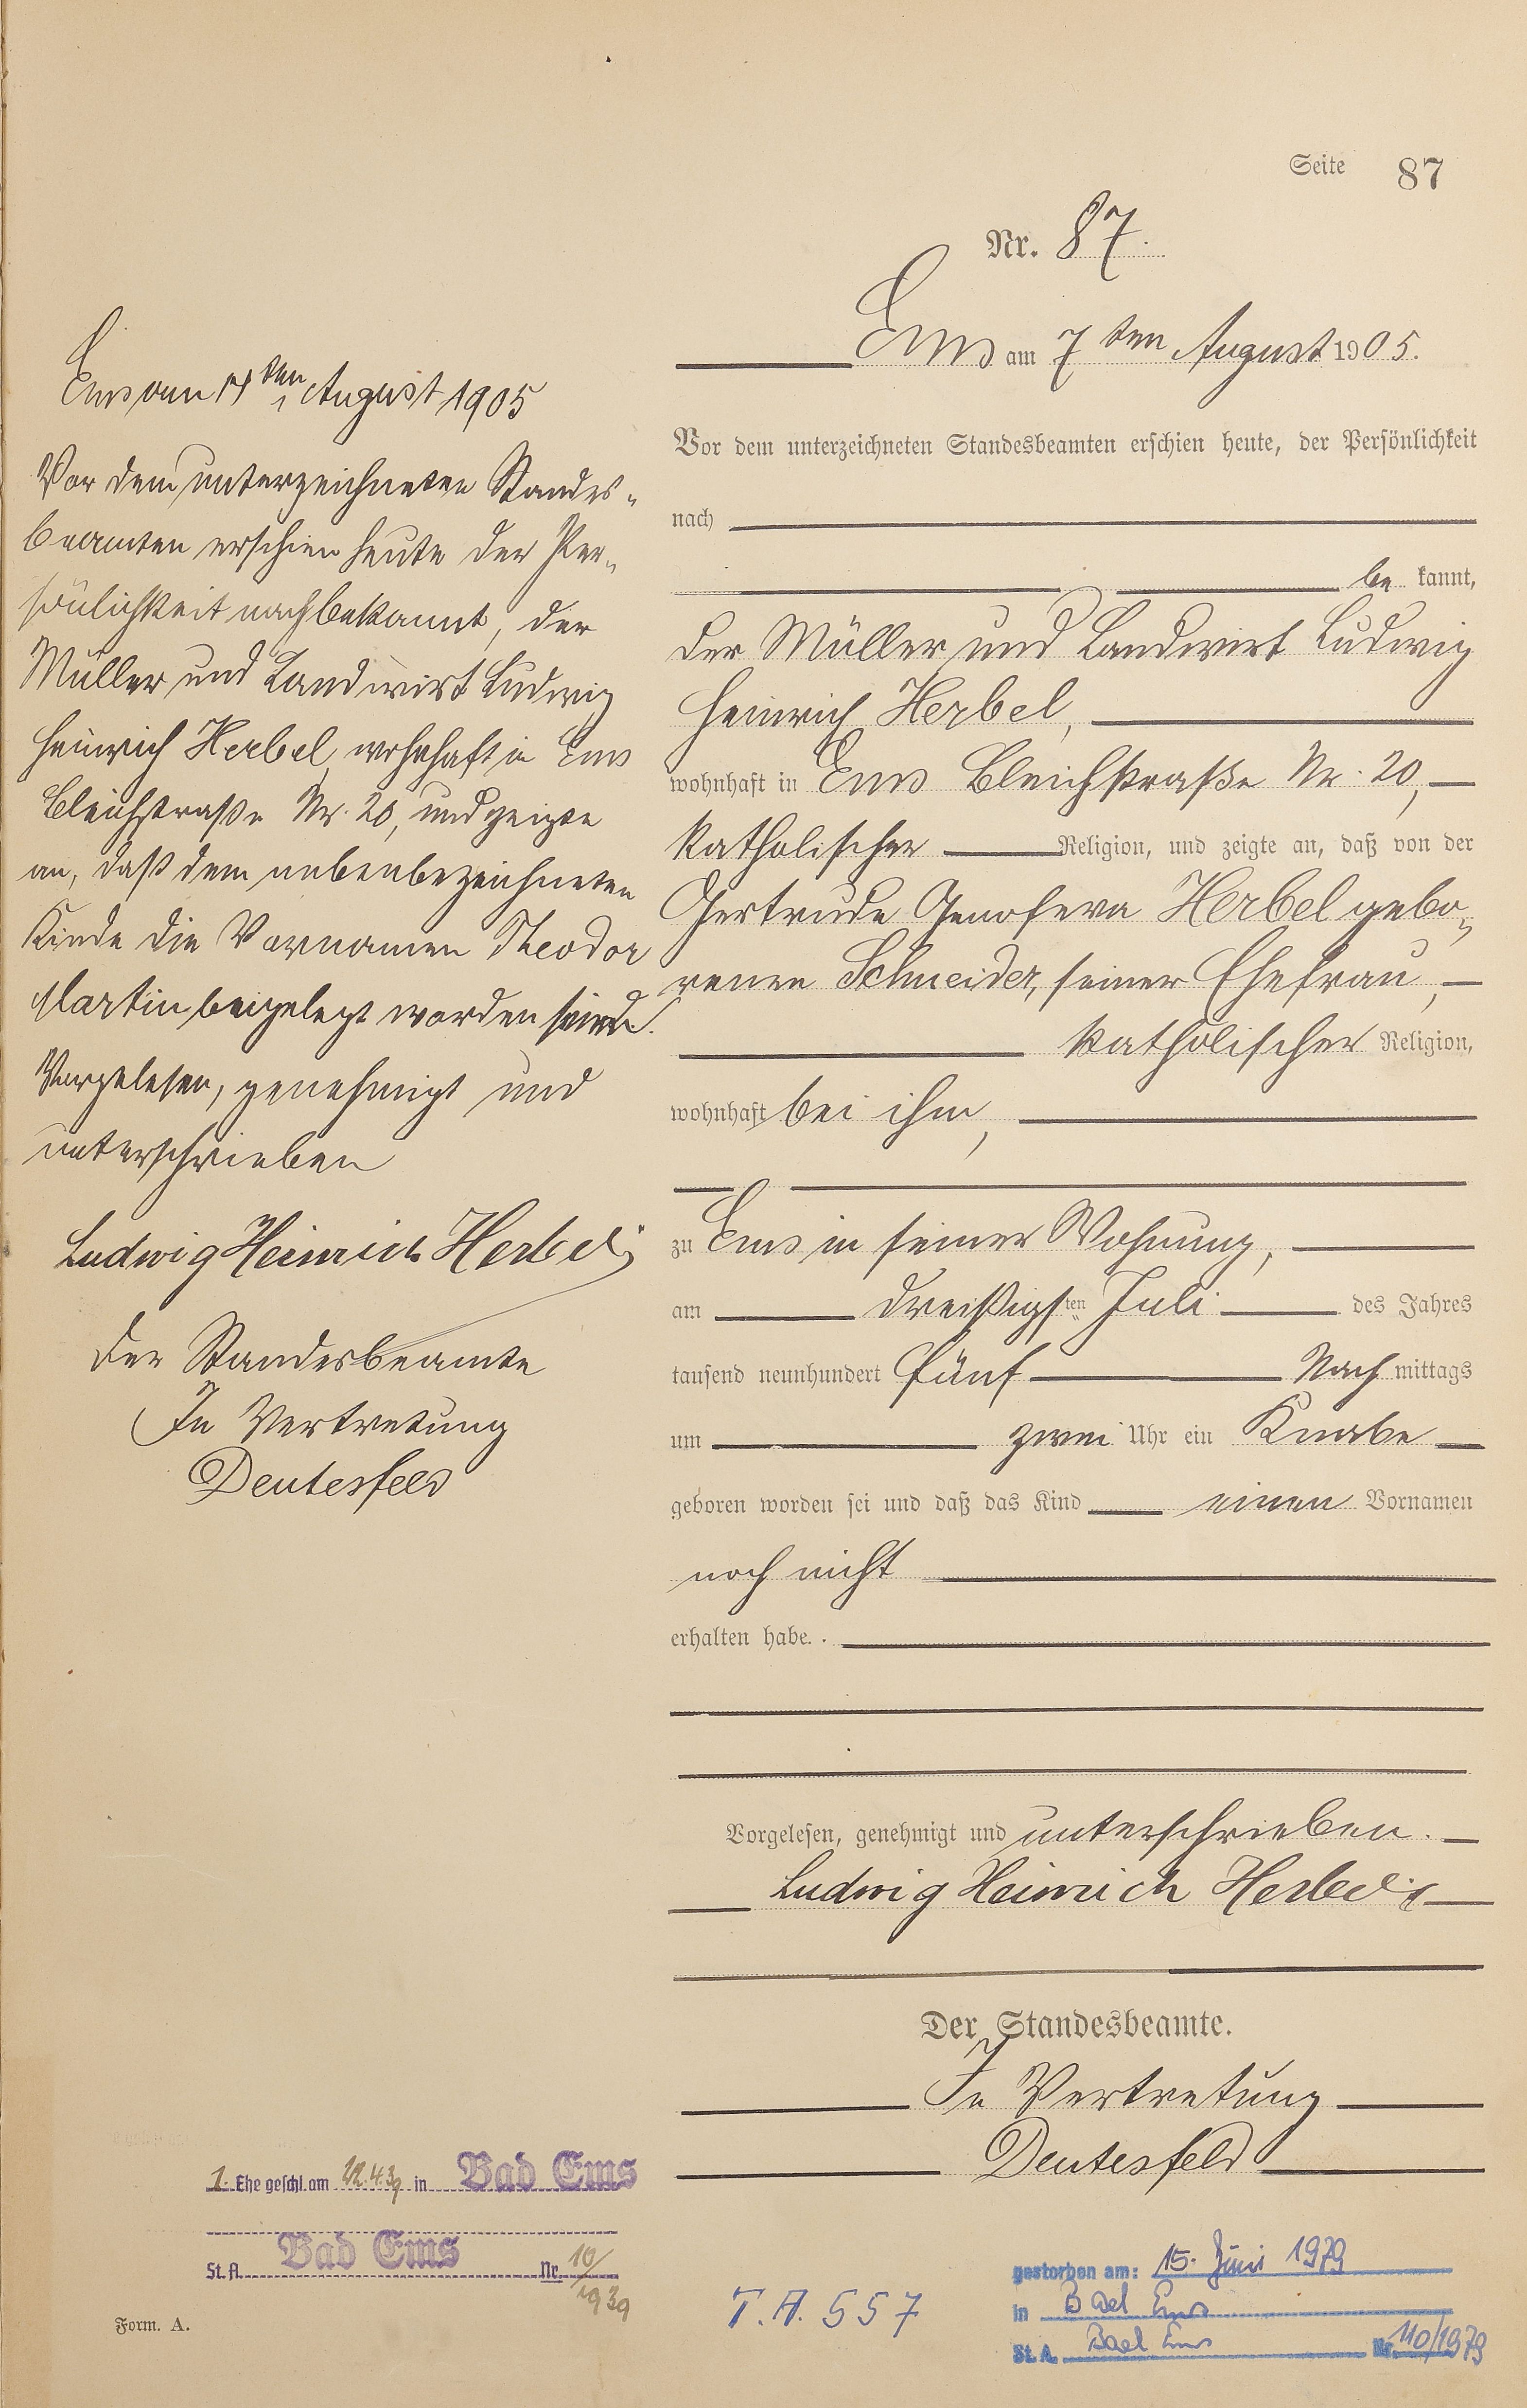 Seite 87
Nr. 87.
Ems am 7ten August 1905.
Vor dem unterzeichneten Standesbeamten erschien heute, der Persönlichkeit
nach
bekannt,
der Müller und Landwirt Ludwig
Heinrich Herbel,
wohnhaft in Ems Bleichstraße Nr. 20,
katholischer Religion, und zeigte an, daß von der
Gertrude Genofeva Herbel gebo-
renen Schneider, seiner Ehefrau,
katholischer Religion,
wohnhaft bei ihm,
zu Ems in seiner Wohnung,
am dreißigsten Juli des Jahres
tausend neunhundert fünf Nachmittags
um zwei Uhr ein Knabe
geboren worden sei und daß das Kind einen Vornamen
noch nicht
erhalten habe.
Vorgelesen, genehmigt und unterschrieben.
Ludwig Heinrich Herbel
Der Standesbeamte.
In Vertretung
Deutesfeld
Ems am ten August 1905
Vor dem unterzeichneten Standes-
beamten erschien heute der Per-
sönlichkeit nach bekannt, der
Müller und Landwirt Ludwig
Heinrich Herbel, wohnhaft in Ems
Bleichstraße Nr. 20, und zeigte
an, daß dem nebenbezeichneten
Kinde die Vornamen Theodor
Martin beigelegt worden
Vorgelesen, genehmigt und
unterschrieben
Ludwig Heinrich Herbel
Der Standesbeamte
In Vertretung
Deutesfeld
1. Ehe geschl. am 12.4.39 in Bad Ems
St. A. Bad Ems Nr. 10/1939
Form. A.
T.A. 557
gestorben am: 15. Juni 1979
in Bad Ems
St. A. Bad Ems Nr. 110/1979